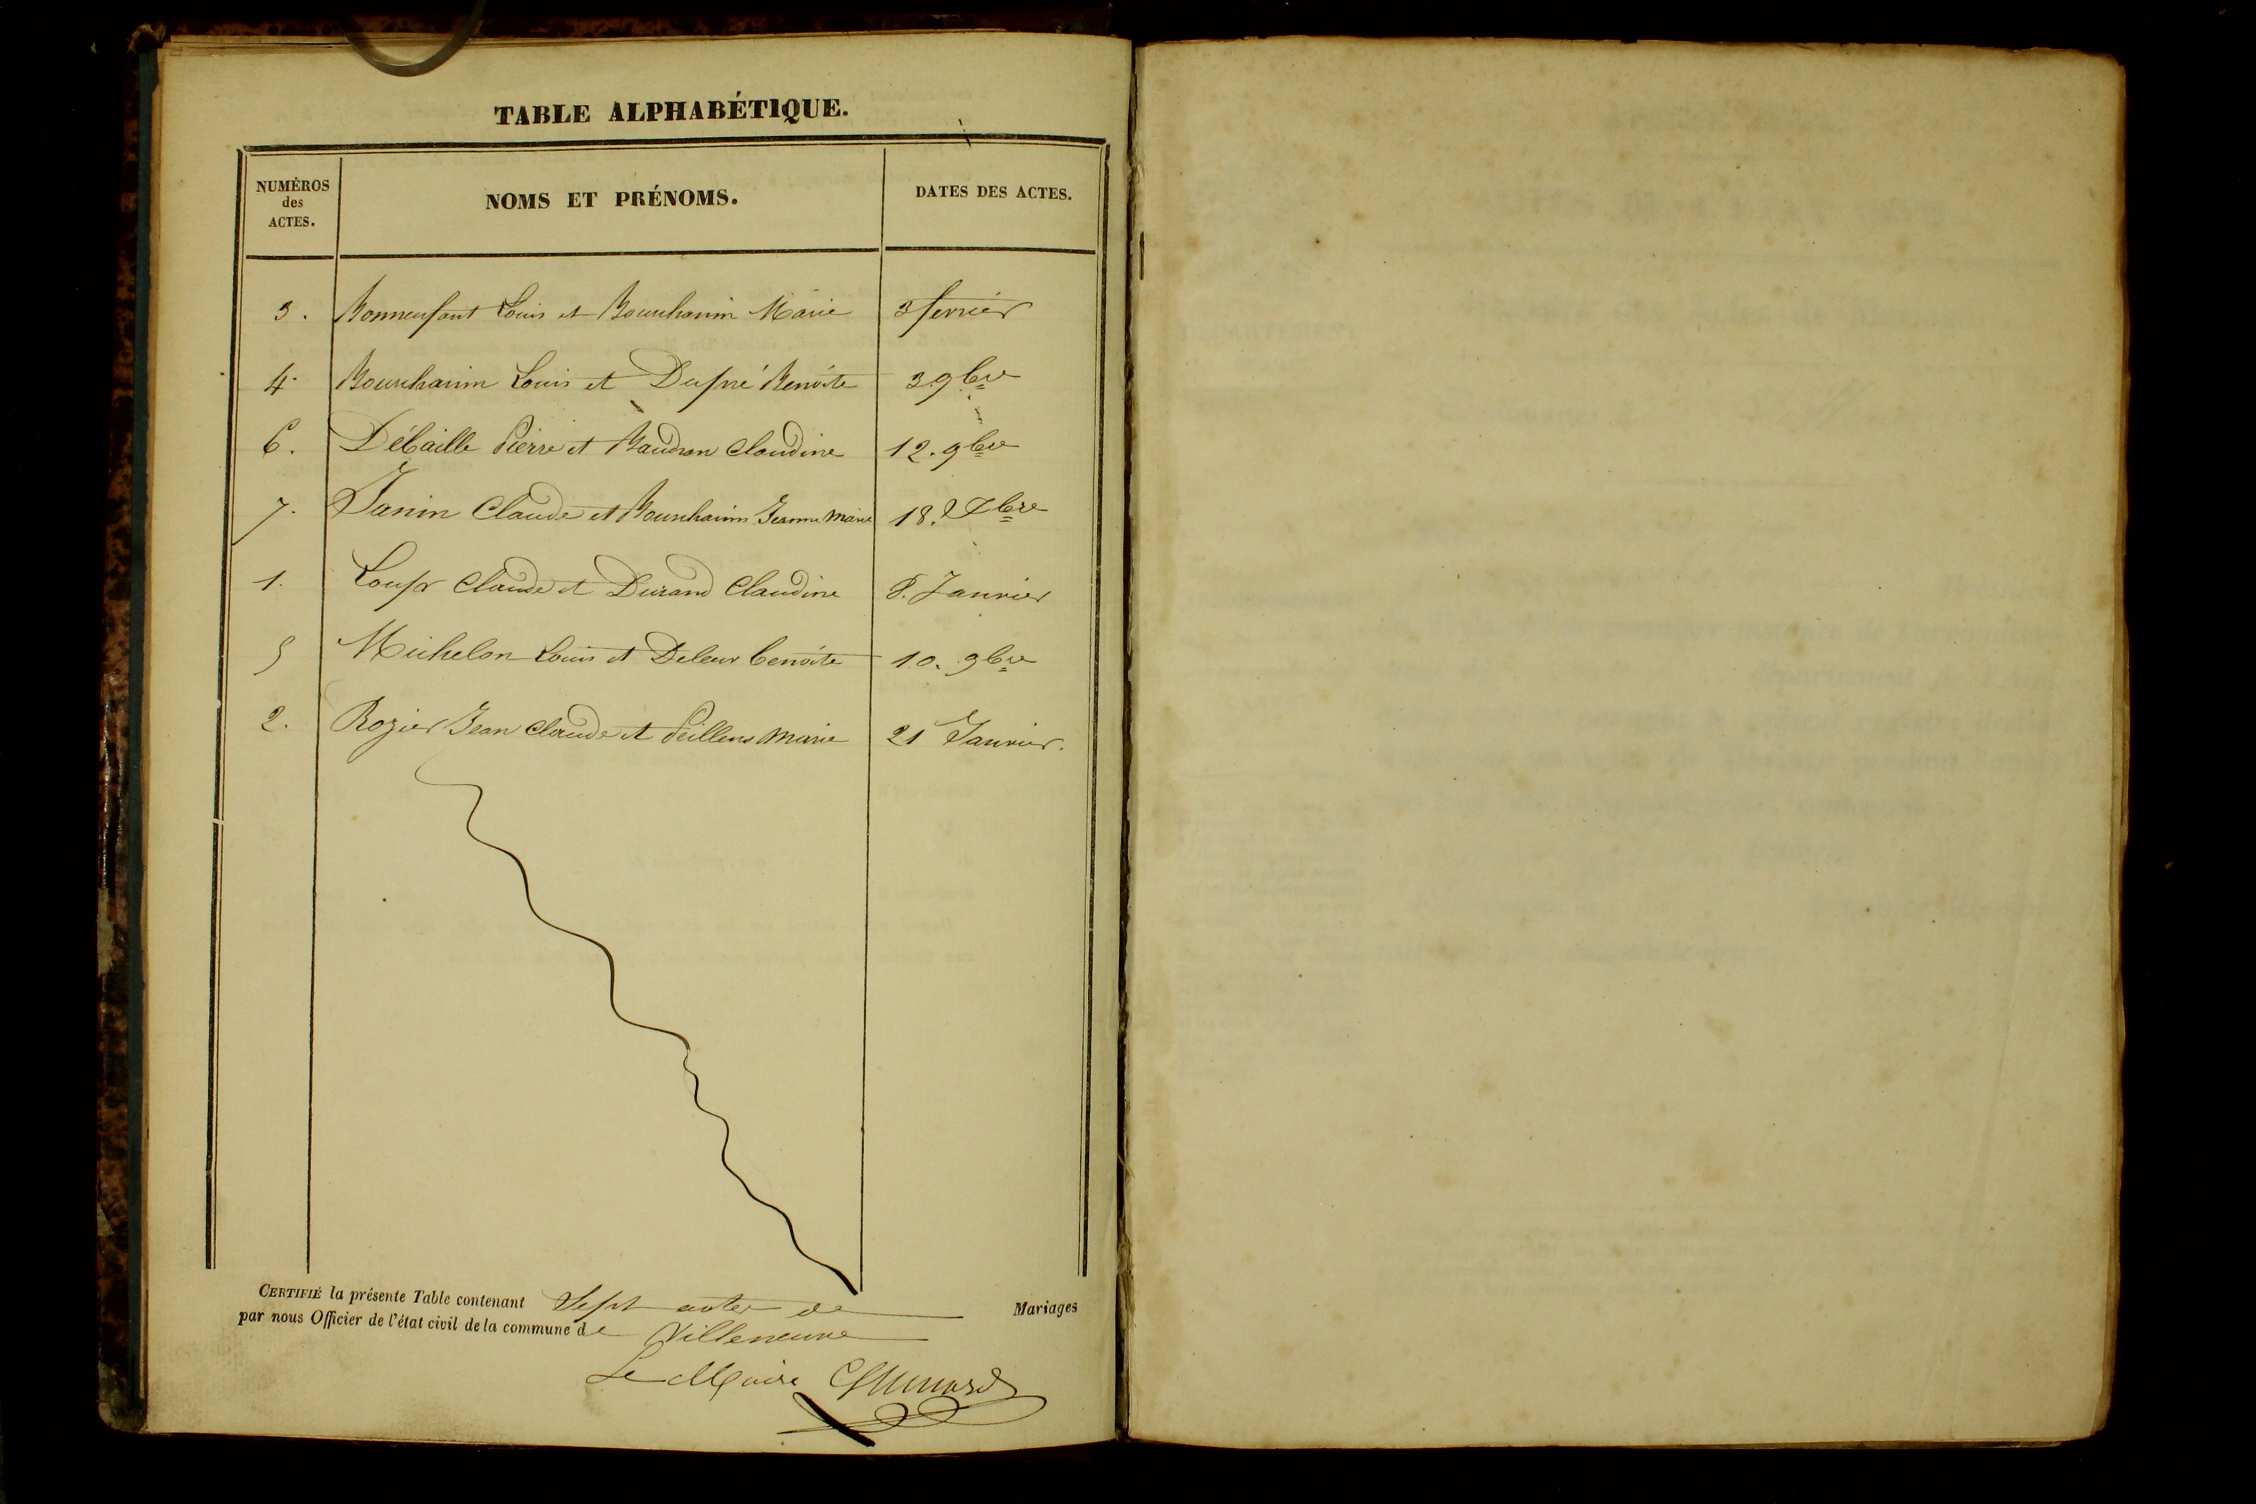 TABLE ALPHABÉTIQUE.
NUMÉROS des ACTES. NOMS ET PRÉNOMS. DATES DES ACTES.
3. Bonnenfant Louis et Bourcharnin Marie 3 fevrier
4. Bourcharnin Louis et Dupré Benoite 3 9bre
6. Débaille Pierre et Baudran Claudine 12. 9bre
7. Janin Claude et Bourcharnin Jeanne Marie 18. Xbre
1. Loup Claude et Durand Claudine 8. Janvier
5 Michelon Louis et Deleur benoite 10. 9bre
2. Rozier Jean Claude et Peillens Marie 21 Janvier.
CERTIFIÉ la présente Table contenant Sept actes de Mariages
par nous Officier de l'état civil de la commune de Villeneuve
Le Maire